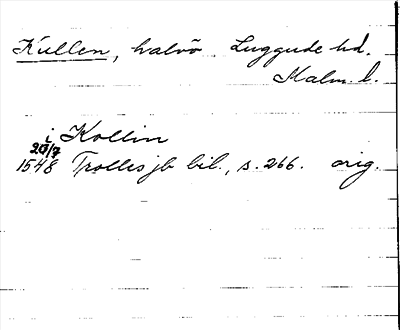 Kullen, halvö Luggude hd.
Malm. l.
i Kollin
20/7
1548 Trolles jb bil., s. 266. orig.